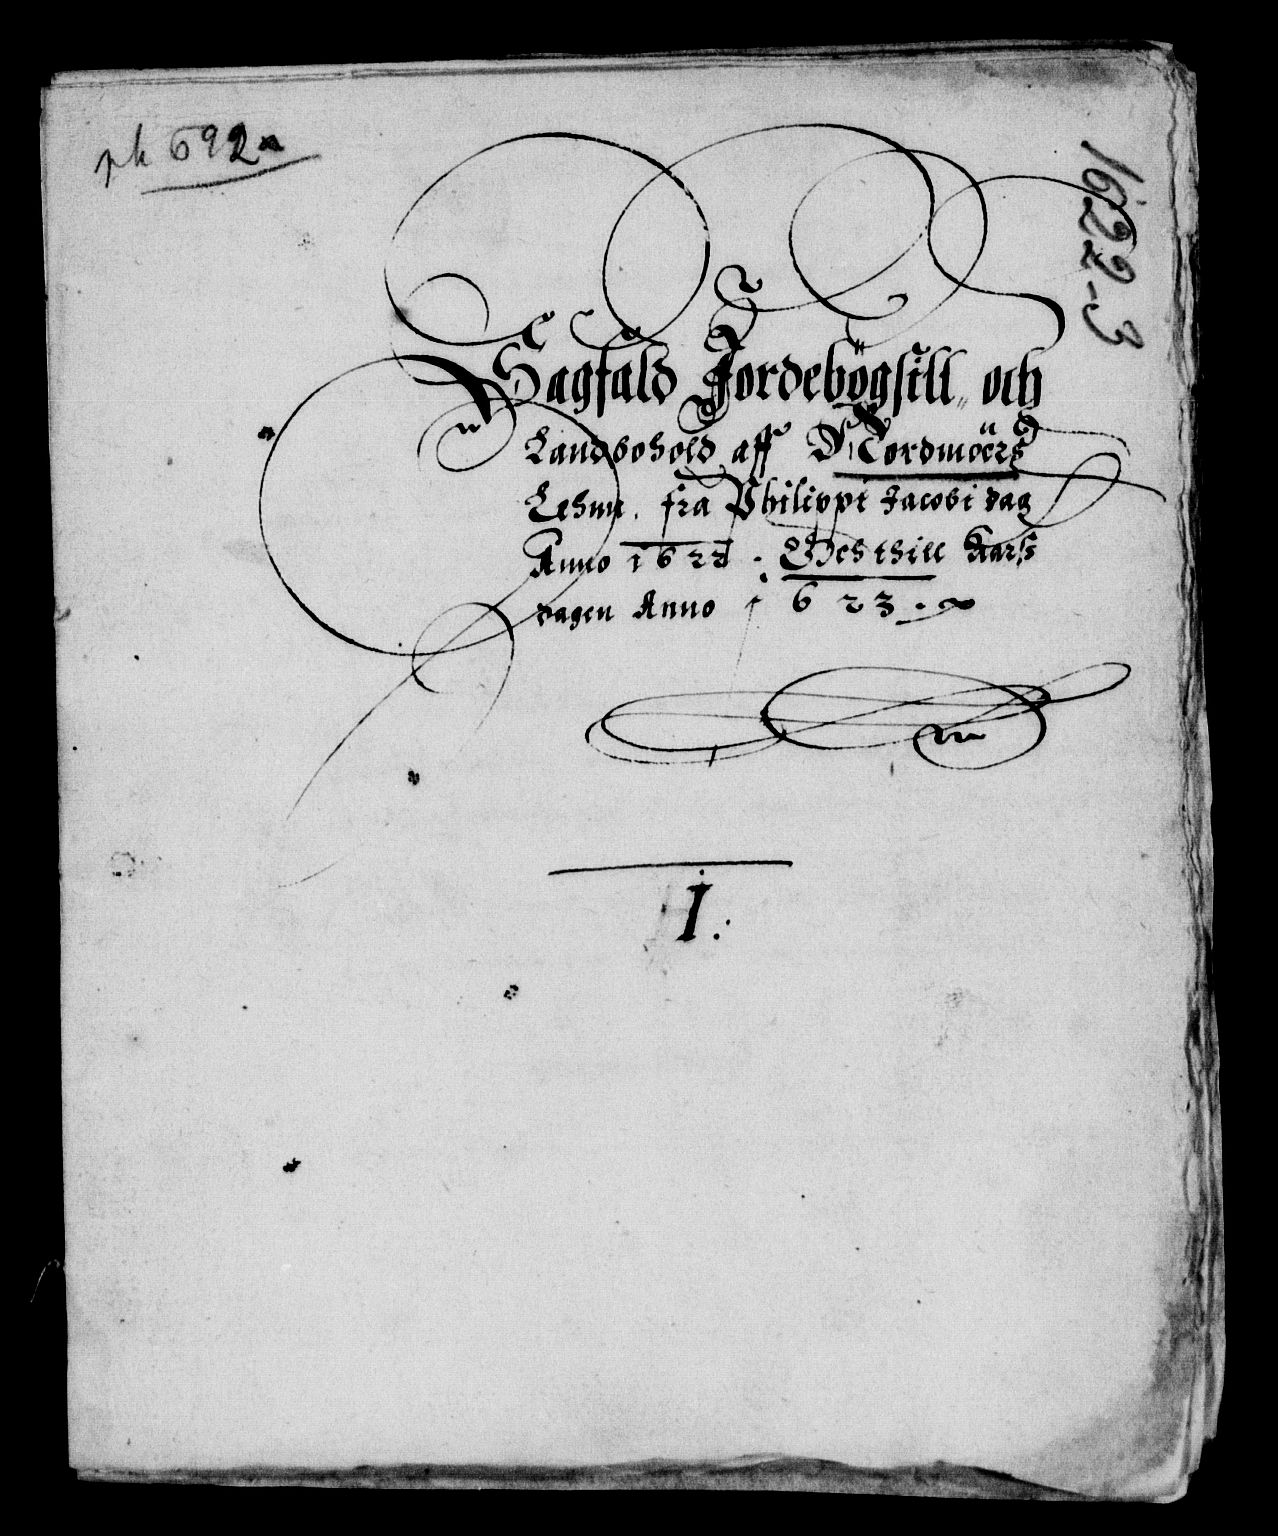 pk 692
1622-3
Sagfald Jordebögsell och
Landbohold aff Nordmöers
Lehnn, fra Philippi Jacobi dag
Anno 1622. Och thill Kaars
dagen Anno 1623.
I.